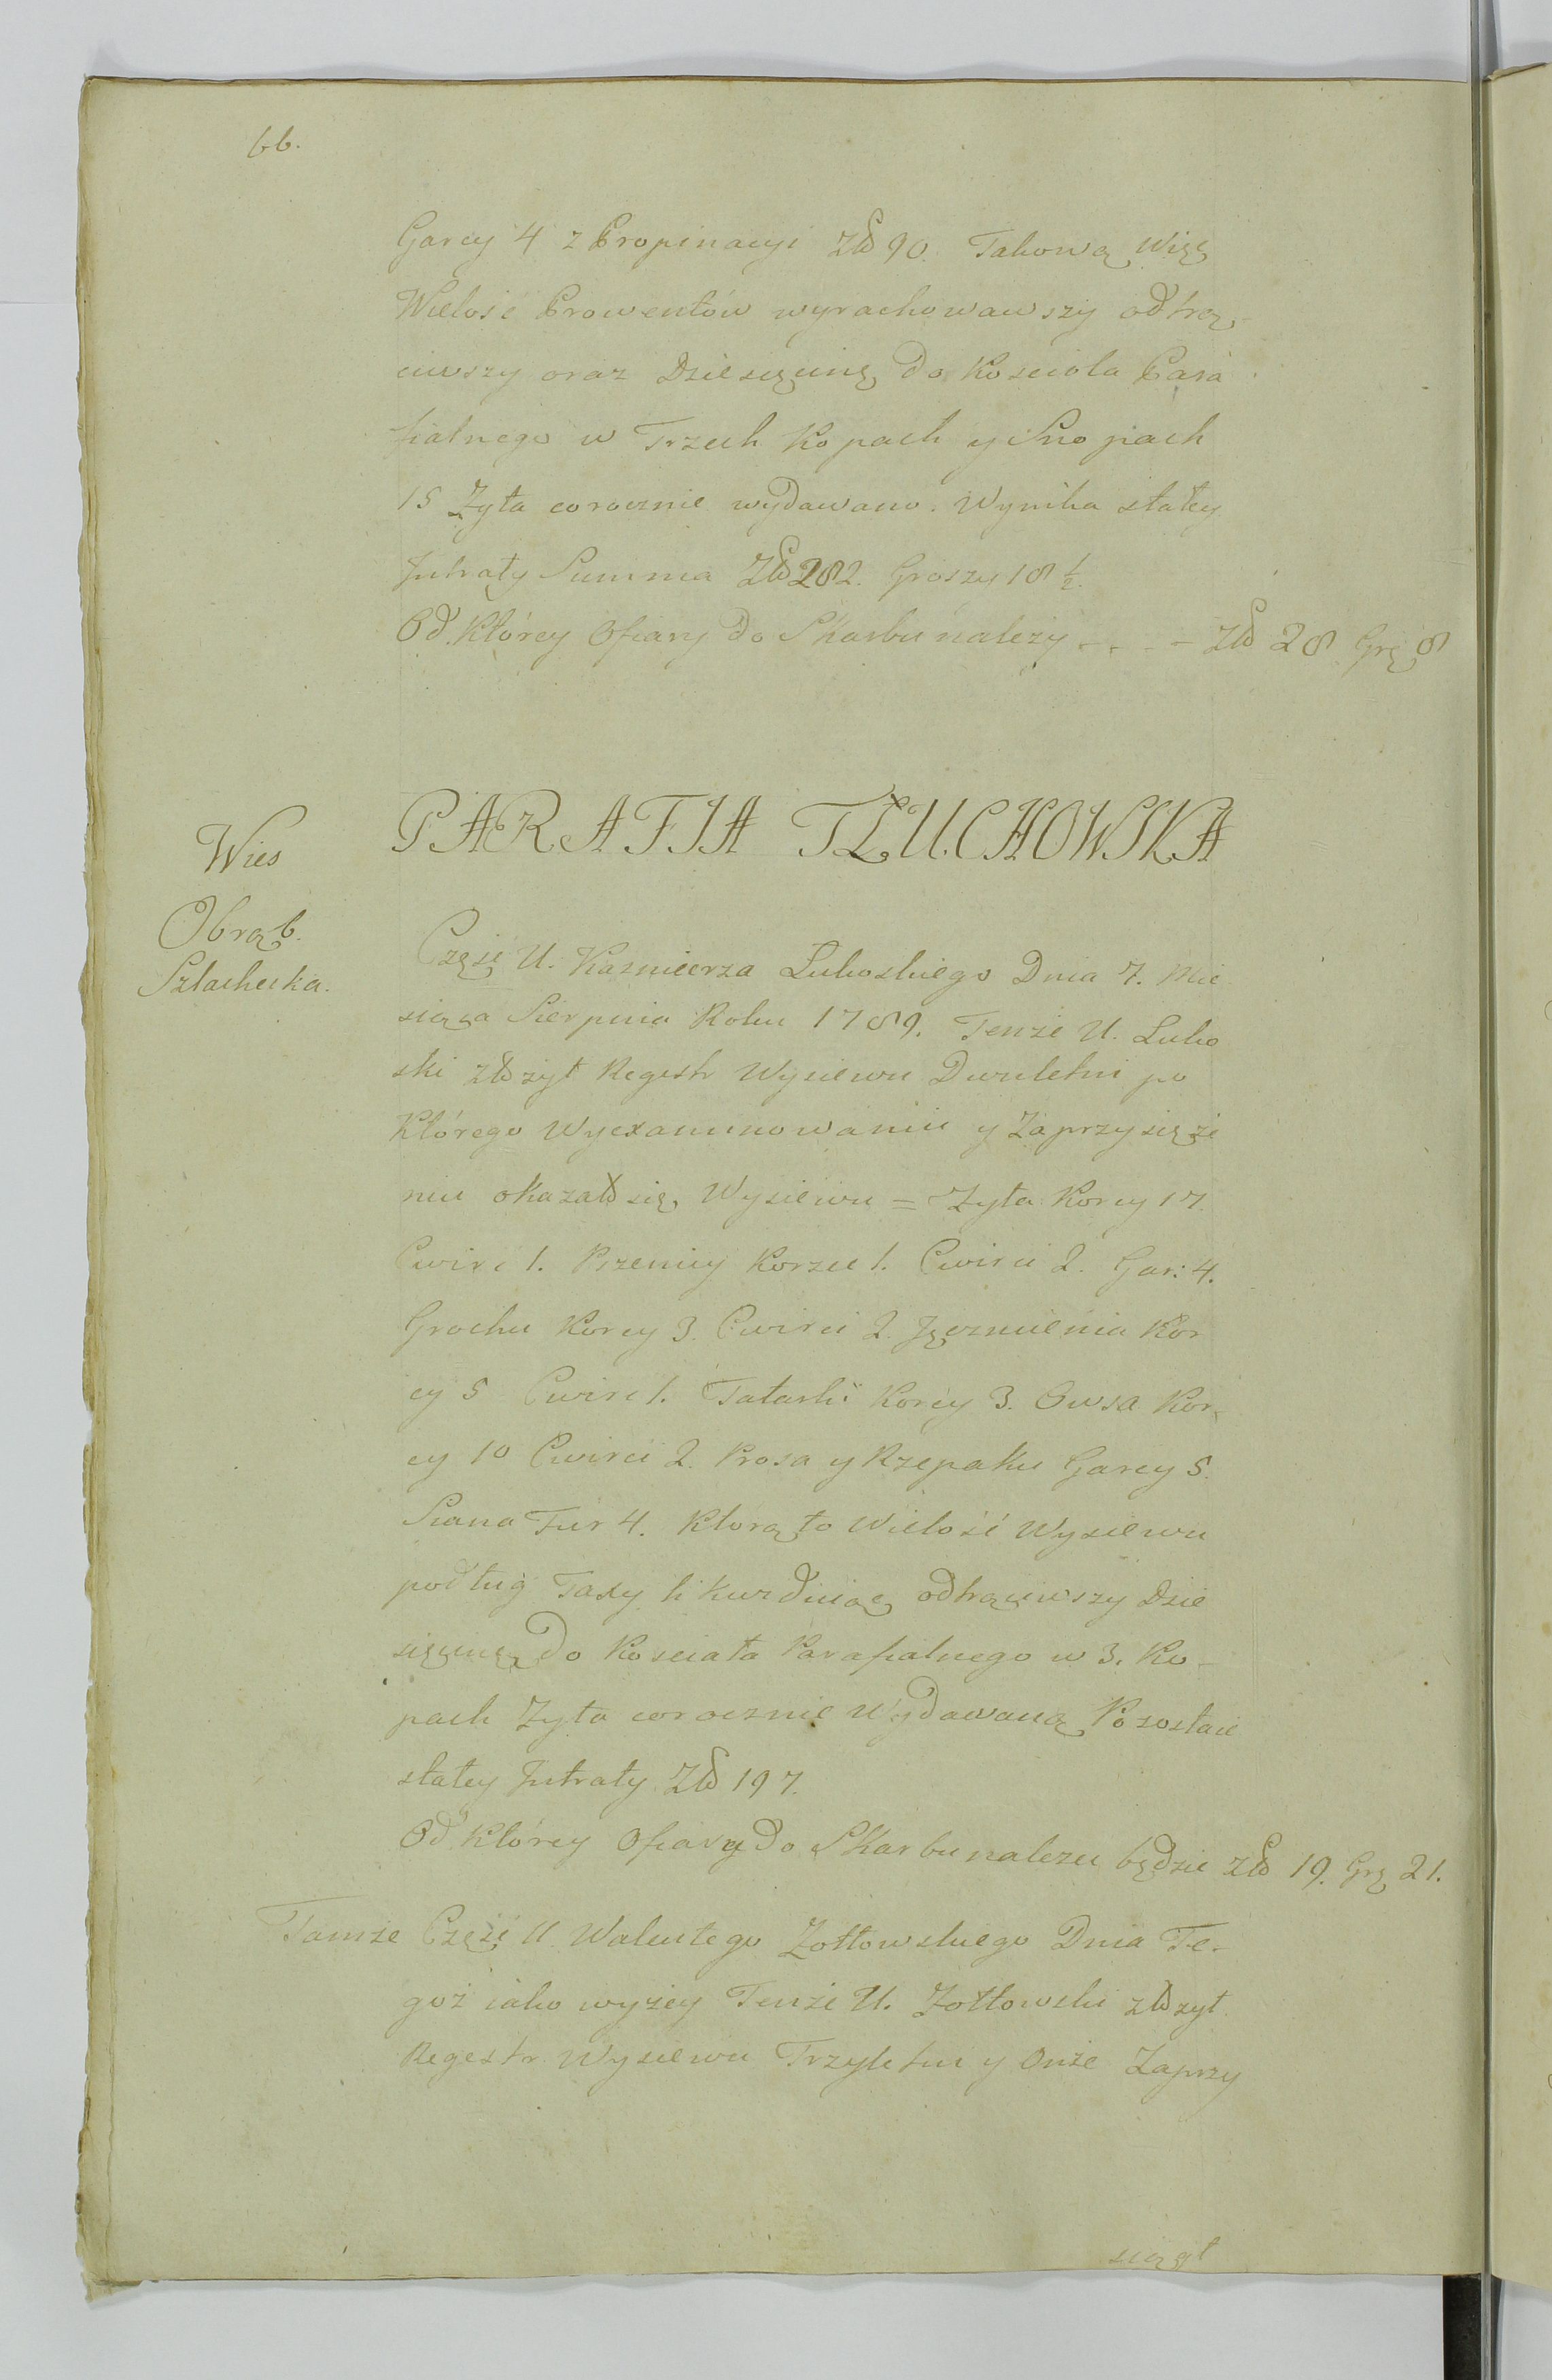 66.
Garcy 4 z Propinacyi Zło 90. Takową Więc
Wielość Prowentów wyrachowawszy odtrą-
ciwszy oraz Dziesięcinę do Kosciola Para
fialnego w Trzech Kopach y Snopiach
15 Zyta corocznie wydawano. Wynika stałey
Jntraty Summa Zło 282. Groszy 18 1/2.
Od Którey Ofiary do Skarbu nalezy - - - - Zło 28 Grę 8
PARAFIA TŁUCHOWSKA
Wies
Obrąb.
Szlachecka.
Część U. Kazmierza Lukoskiego Dnia 7. Mie
siąca Sierpnia Roku 1789. Tenże U. Luko
ski złożył Regestr Wysiewu Dwuletni po
Którego Wyexaminowaniu y Zaprzysięże
niu okazało się Wysiewu = Zyta Korcy 17.
Cwierć 1. Pszenicy Korzec 1. Cwierci 2. Gar: 4.
Grochu Korcy 3. Cwierci 2. Jęczmienia Kor
cy 5 Cwierć 1. Tatarki Korcy 3. Owsa Kor-
cy 10 Cwierci 2. Prosa y Rzepaku Garcy 5.
Siana Fur 4. Którą to Wielość Wysiewu
podług Taxy likwiduiąc odtrąciwszy Dzie
sięcinę do Kosciała Parafialnego w 3. Ko-
pach Zyta corocznie Wydawaną Pozostaie
stałey Jntraty Zło 197.
Od Którey Ofiary do Skarbu nalezeć będzie Zło 19. Grę 21.
Tamże Część U. Walentego Zołtowskiego Dnia Te-
goż iako wyżey Tenże U. Zołtowski złożył
Regestr Wysiewu Trzyletni y Onże Zaprzy
siągł